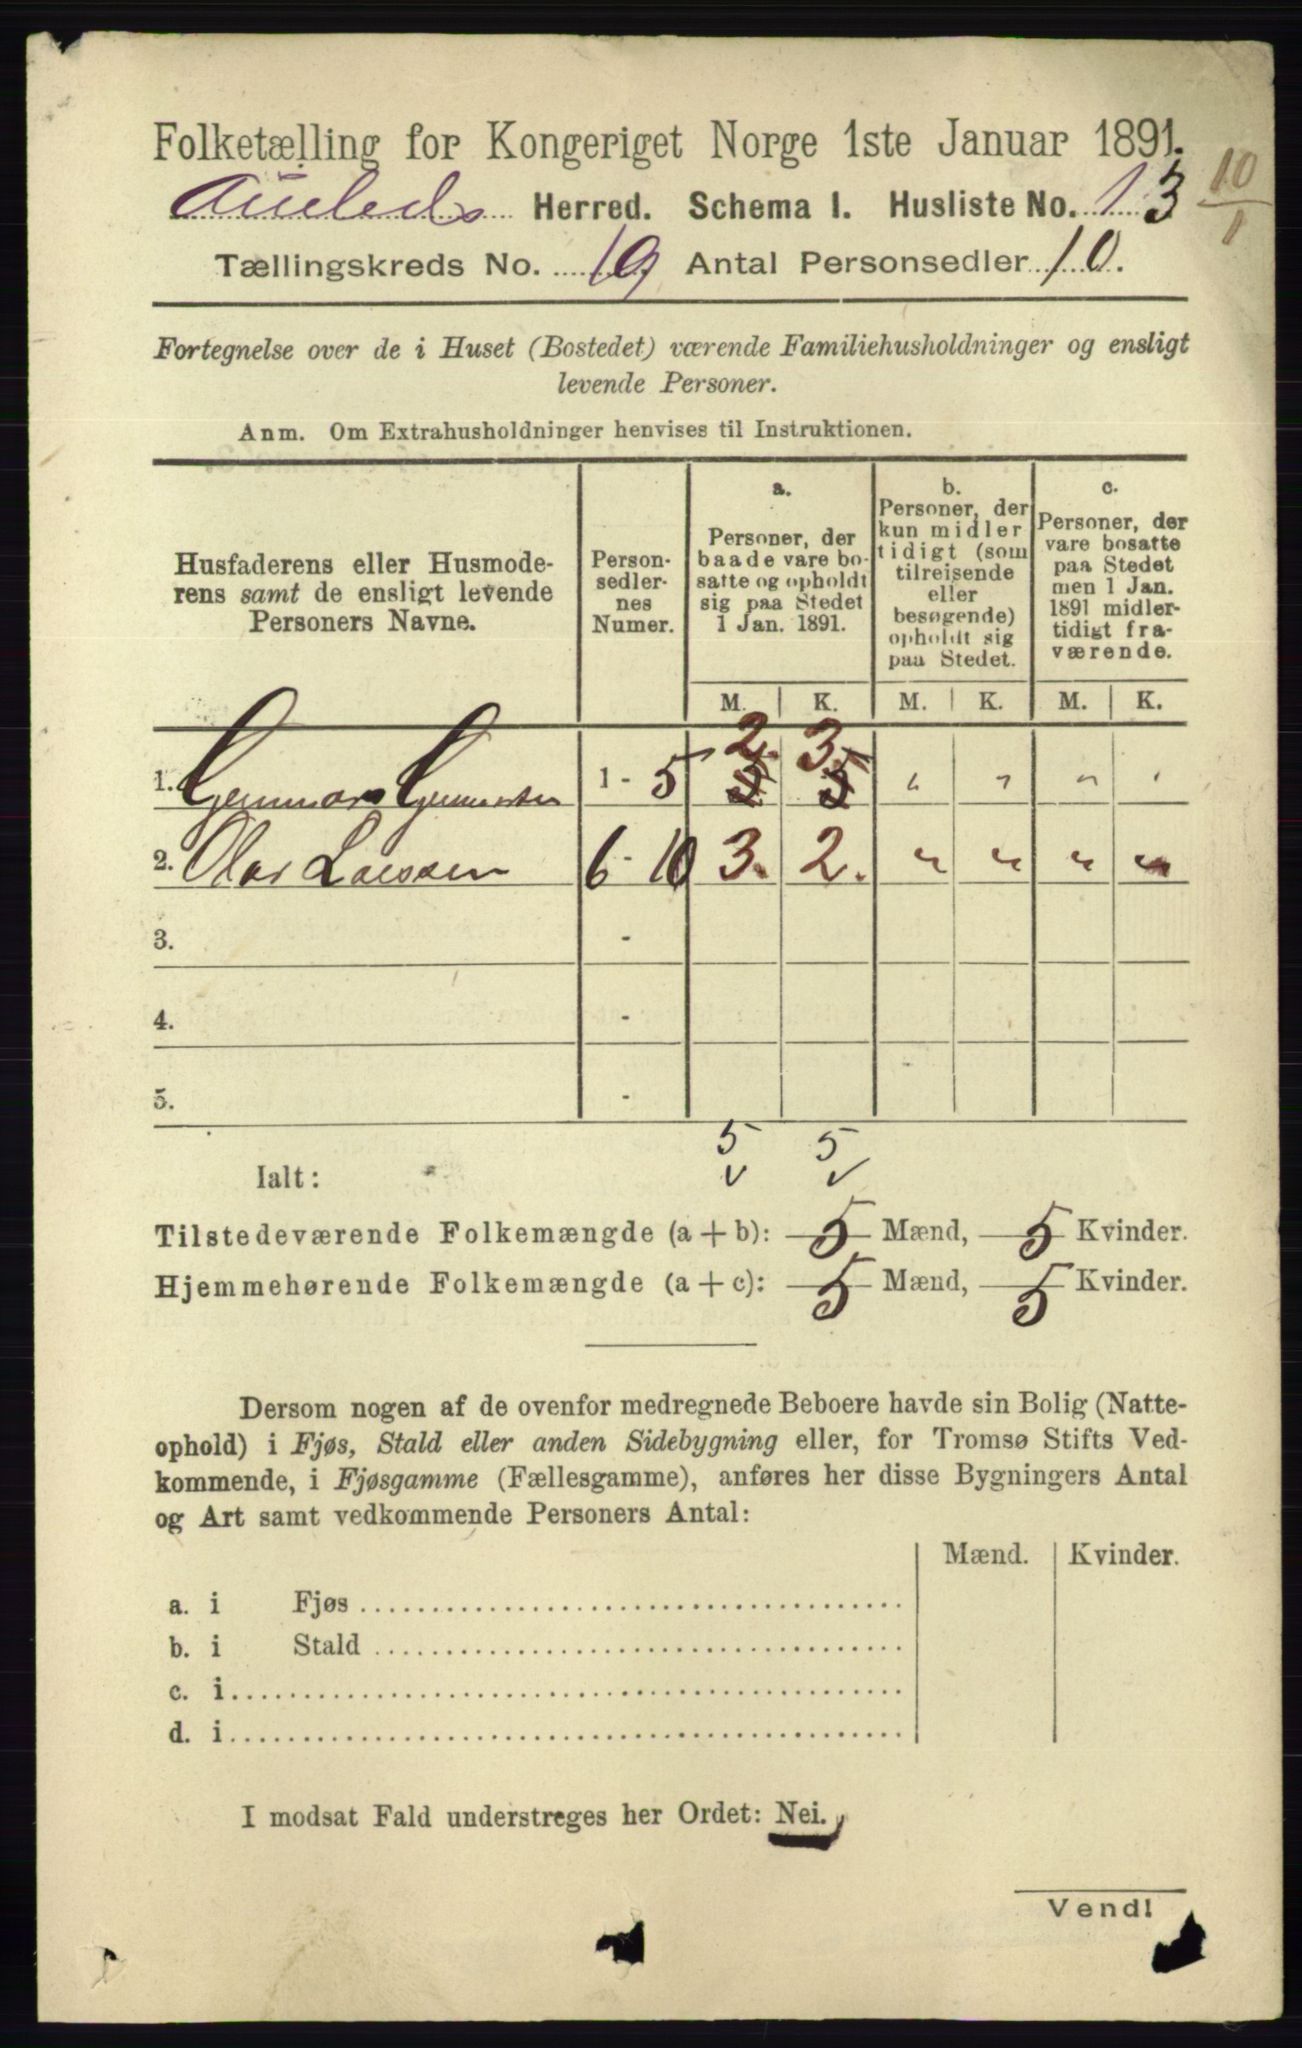 Folketælling for Kongeriget Norge 1ste Januar 1891.
10
1
Herred. Schema I. Husliste No. 13
Tællingskreds No. 19 Antal Personsedler 10.
Fortegnelse over de i Huset (Bostedet) værende Familiehusholdninger og ensligt
levende Personer.
Anm. Om Extrahusholdninger henvises til Instruktionen.
Husfaderens eller Husmode-
rens samt de ensligt levende
Personers Navne.
Person-
sedler-
nes
Numer.
a.
Personer, der
baade vare bo-
satte og opholdt
sig paa Stedet
1 Jan. 1891.
b.
Personer, der
kun midler
tidigt (som
tilreisende
eller
besøgende)
opholdt sig
paa Stedet.
c.
Personer, der
vare bosatte
paa Stedet
men 1 Jan.
1891 midler-
tidigt fra-
værende.
M. K. M. K. M. K.
2. 3.
1. Gunnar 1 - 5 5 5 " " " "
2. Olas Larssen 6 - 10 3. 2. " " " "
3. -
4. -
5. -
5 5
Ialt: v v
Tilstedeværende Folkemængde (a + b): 5 Mænd, 5 Kvinder.
Hjemmehørende Folkemængde (a + c): 5 Mænd, 5 Kvinder.
Dersom nogen af de ovenfor medregnede Beboere havde sin Bolig (Natte-
ophold) i Fjøs, Stald eller anden Sidebygning eller, for Tromsø Stifts Ved-
kommende, i Fjøsgamme (Fællesgamme), anføres her disse Bygningers Antal
og Art samt vedkommende Personers Antal:
Mænd. Kvinder.
a. i Fjøs
b. i Stald
c. i
d. i
I modsat Fald understreges her Ordet: Nei.
Vend!